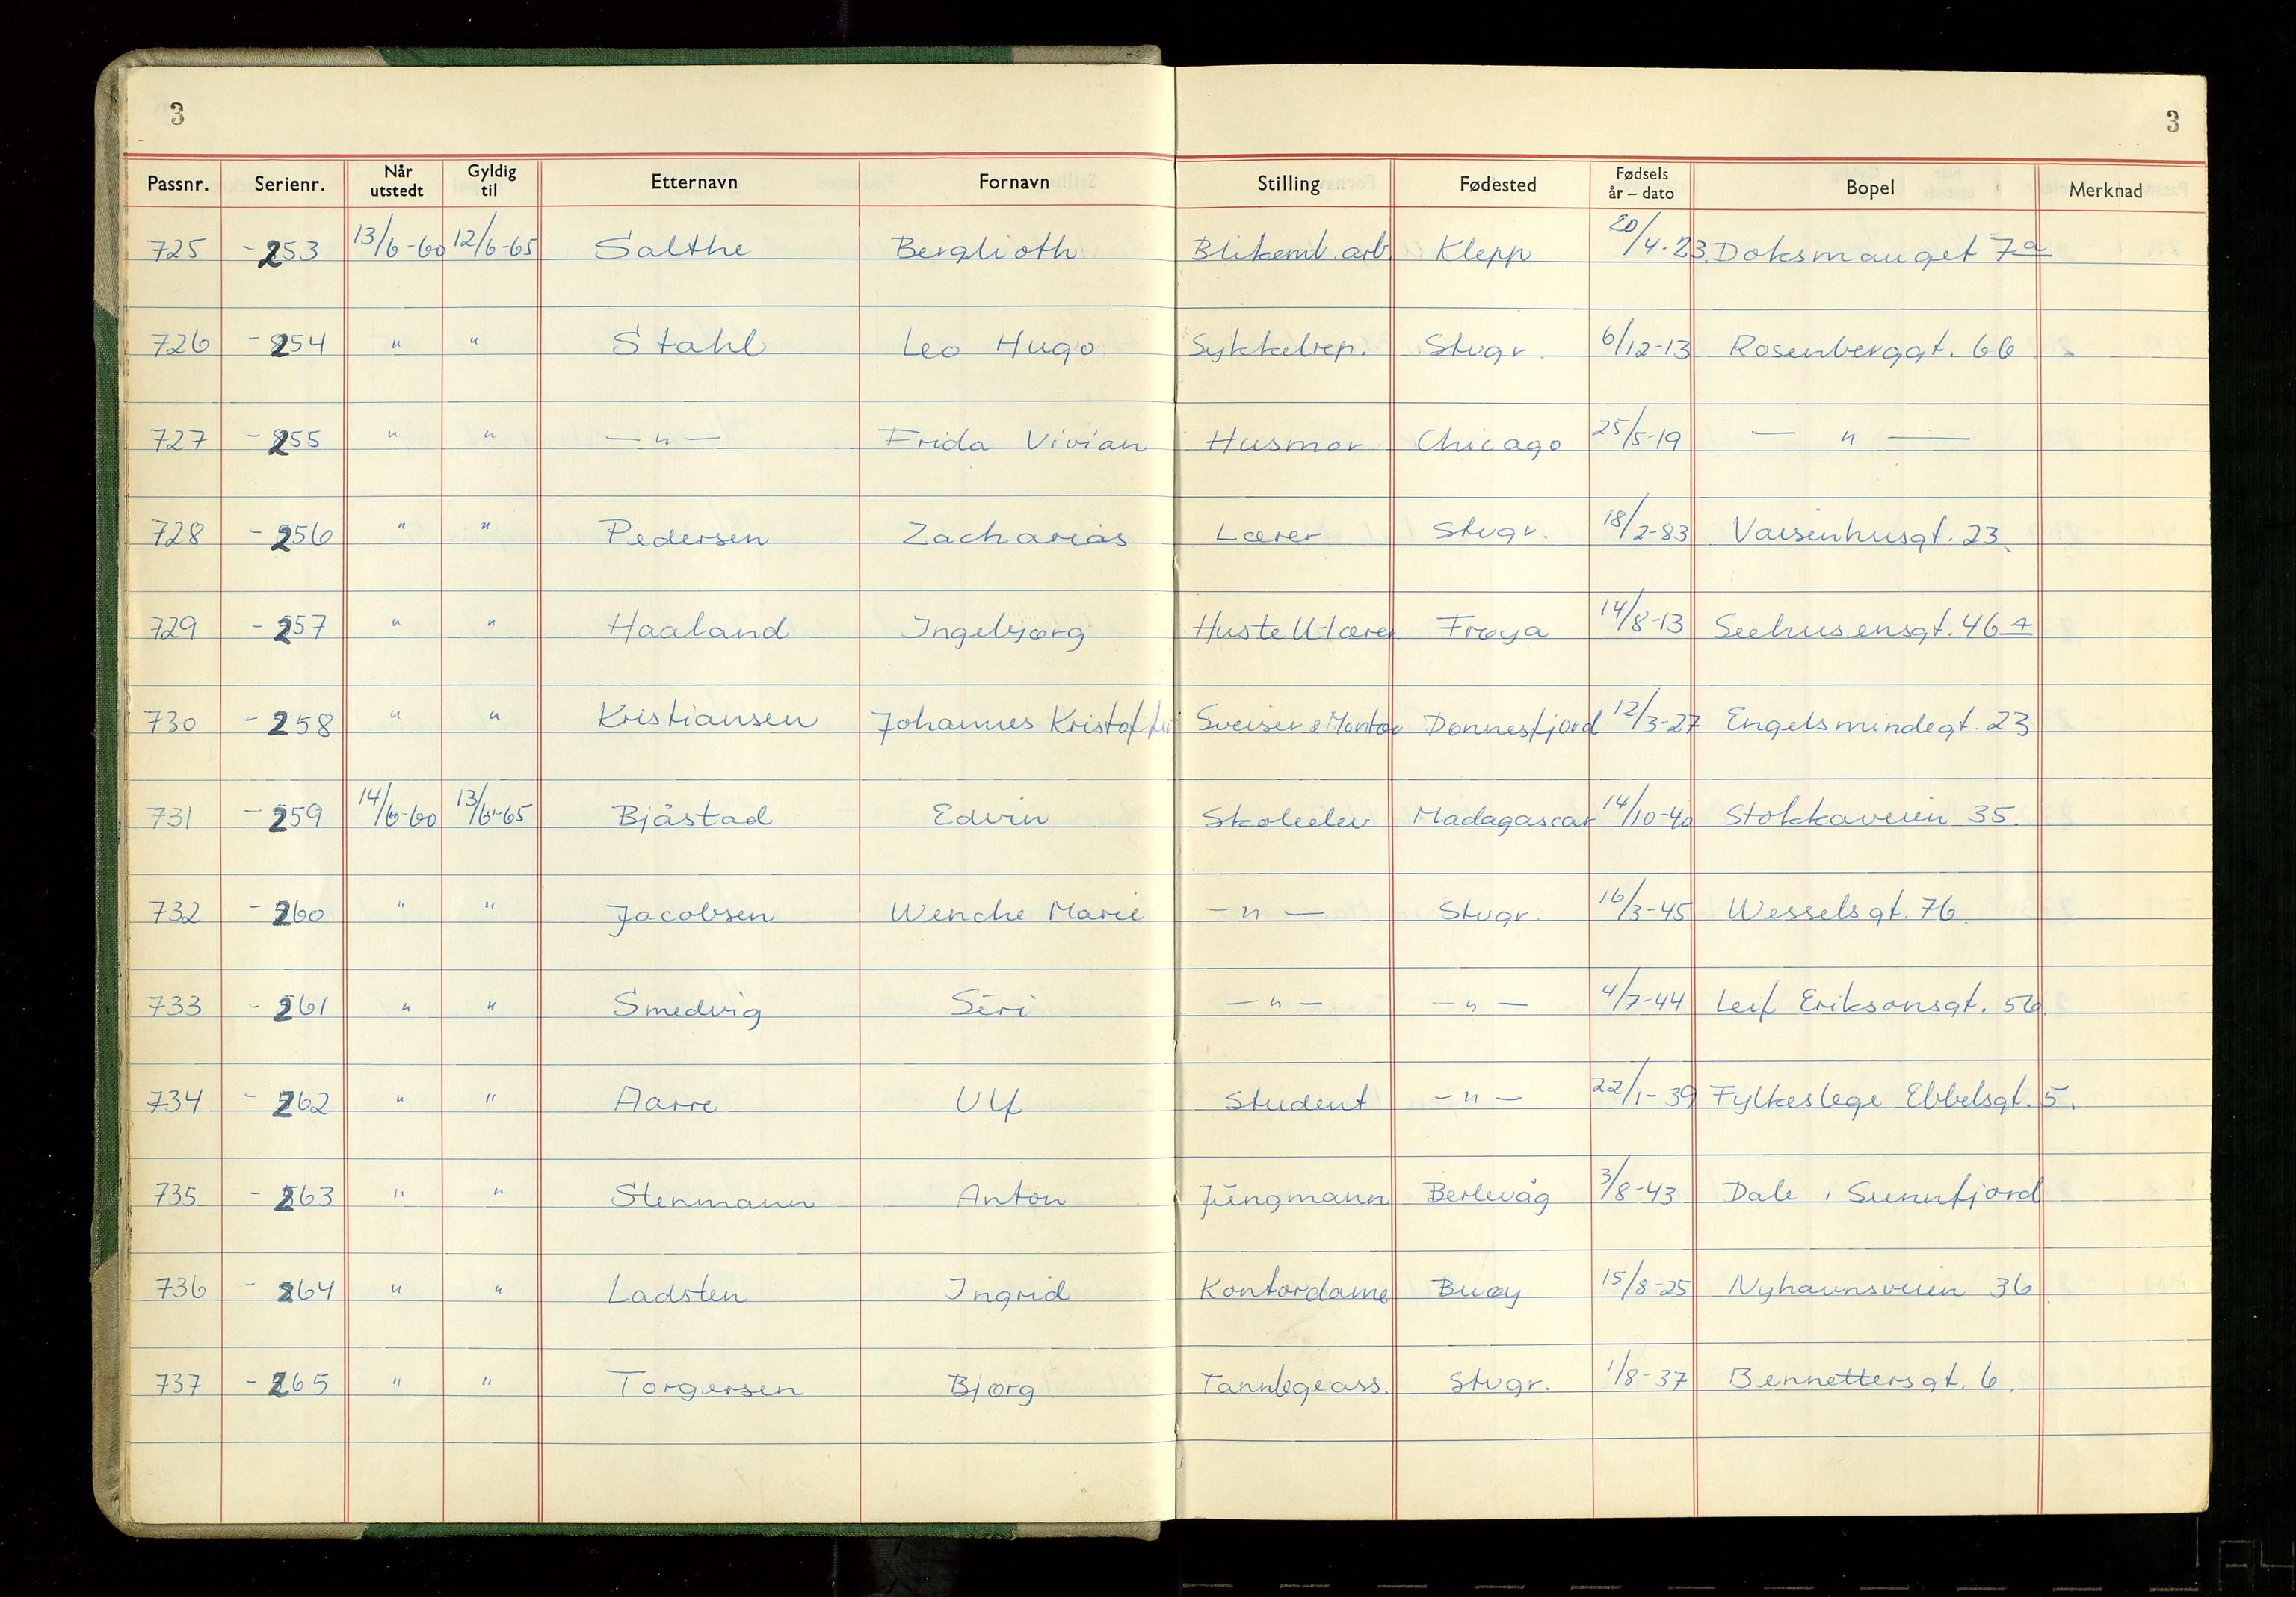 3 3
Passnr. Serienr. Når utstedt Gyldig til Etternavn Fornavn Stilling Fødested Fødsels år – dato Bopel Merknad
725 -253 13/6-60 12/6-65 Salthe Berglioth Blikemb.arb. Klepp 20/4-23. Doksmauget 7a
726 -254 " " Stahl Leo Hugo Sykkelrep. Stvgr. 6/12-13 Rosenberggt. 66
727 -255 " " — " — Frida Vivian Husmor Chicago 25/5-19 — " —
728 -256 " " Pedersen Zacharias Lærer Stvgr. 18/2-83 Vaisenhusgt. 23.
729 -257 " " Haaland Ingebjørg Hustell-lærer. Frøya 14/8-13 Seehusensgt. 46A
730 -258 " " Kristiansen Johannes Kristoffer Sveiser & Montør Dønnesfjord 12/3-27 Engelsmindegt. 23
731 -259 14/6-60 13/6-65 Bjåstad Edvin Skoleelev Madagascar 14/10-40 Stokkaveien 35.
732 -260 " " Jacobsen Wenche Marie — " — Stvgr. 16/3-45 Wesselsgt. 76.
733 -261 " " Smedvig Siri — " — — " — 4/7-44 Leif Eriksonsgt. 56.
734 -262 " " Aarre Ulf Student — " — 22/1-39 Fylkeslege Ebbelsgt. 5.
735 -263 " " Stenmann Anton Jungmann Berlevåg 3/8-43 Dale i Sunnfjord
736 -264 " " Ladsten Ingrid Kontordame Buøy 15/8-25 Nyhavnsveien 36.
737 -265 " " Torgersen Bjørg Tannlegeass. Stvgr. 1/8-37 Bennettersgt. 6.